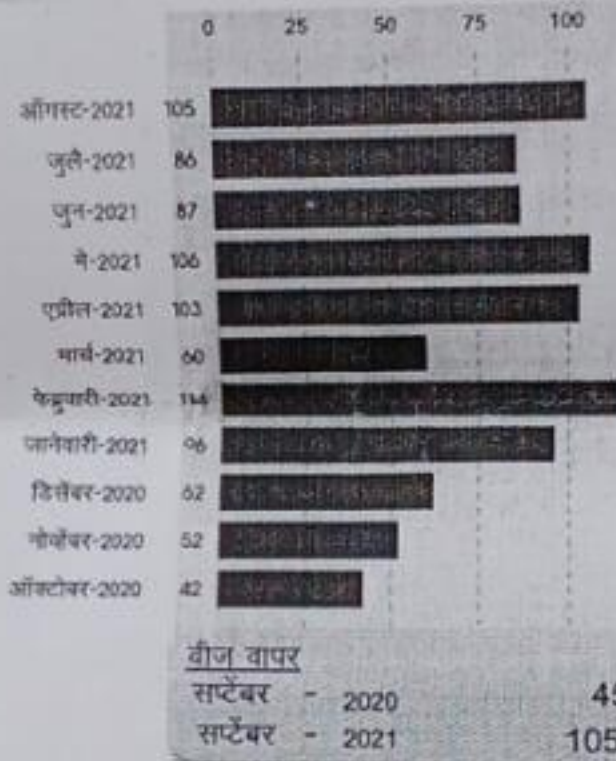 0 25 50 75 100
ऑगस्ट-2021 105
जुलै-2021 86
जुन-2021 87
मे-2021 106
एप्रील-2021 103
मार्च-2021 60
फेब्रुवारी-2021 114
जानेवारी-2021 96
डिसेंबर-2020 62
नोव्हेंबर-2020 52
ऑक्टोबर-2020 42
वीज वापर
सप्टेंबर - 2020
सप्टेंबर - 2021 105